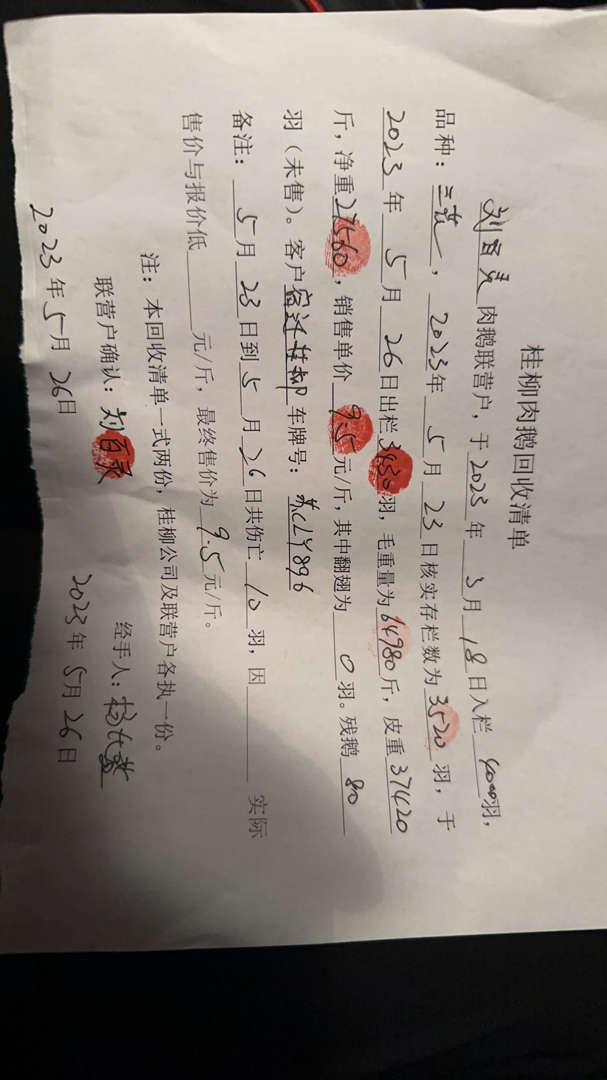 桂柳肉鹅回收清单
刘百灵 肉鹅联营户，于2023年 3月 18日入栏 4000羽，
品种：三花，2023年 5月 23日核实存栏数为3520羽，于
2023年 5月 26日出栏3430羽，毛重量为64980斤，皮重37420
斤，净重27560，销售单价 9.5元/斤，其中翻翅为 0羽。残鹅 80
羽（未售）。客户 车牌号：苏CLY896
备注： 5月 23日到5月26日共伤亡 10羽，因 实际
售价与报价低 元/斤，最终售价为 9.5元/斤。
注：本回收清单一式两份，桂柳公司及联营户各执一份。
联营户确认：刘百灵 经手人：杨
2023年5月26日 2023年5月26日